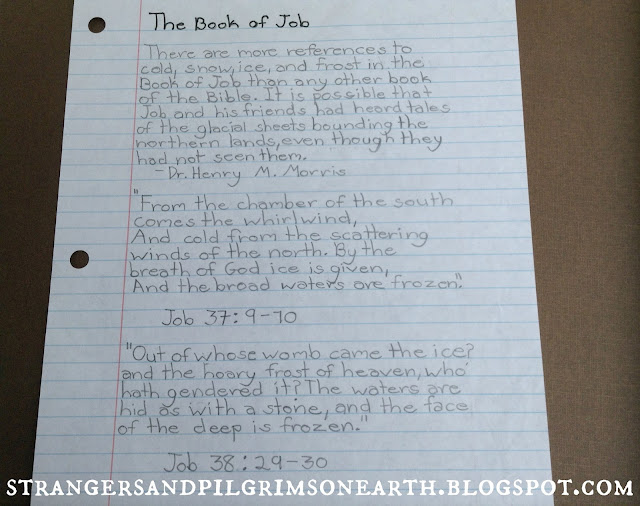 The Book of Job
There are more references to
cold, snow, ice, and frost in the
Book of Job than any other book
of the Bible. It is possible that
Job and his friends had heard tales
of the glacial sheets bounding the
northern lands, even though they
had not seen them.
- Dr. Henry M. Morris
"From the chamber of the south
comes the whirlwind,
And cold from the scattering
winds of the north. By the
breath of God ice is given,
And the broad waters are frozen."
Job 37:9-10
"Out of whose womb came the ice?
and the hoary frost of heaven, who
hath gendered it? The waters are
hid as with a stone, and the face
of the deep is frozen."
Job 38:29-30
STRANGERSANDPILGRIMSONEARTH.BLOGSPOT.COM